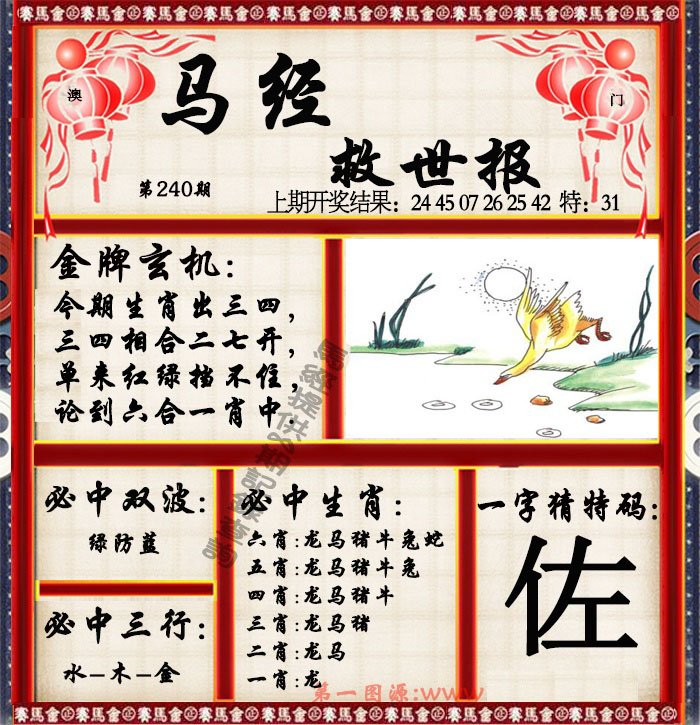 賽馬會金正 賽馬會金正 賽馬會金正 賽馬會金正 賽馬會金正
澳
门
马经
救世报
第240期
上期开奖结果：24 45 07 26 25 42 特：31
金牌玄机：
今期生肖出三四，
三四相合二七开，
单来红绿挡不住，
论到六合一肖中.
必中双波：
绿防蓝
必中三行：
水-木-金
必中生肖：
六肖:龙马猪牛兔蛇
五肖:龙马猪牛兔
四肖:龙马猪牛
三肖:龙马猪
二肖:龙马
一肖:龙
一字猜特码：
佐
第一图源:www